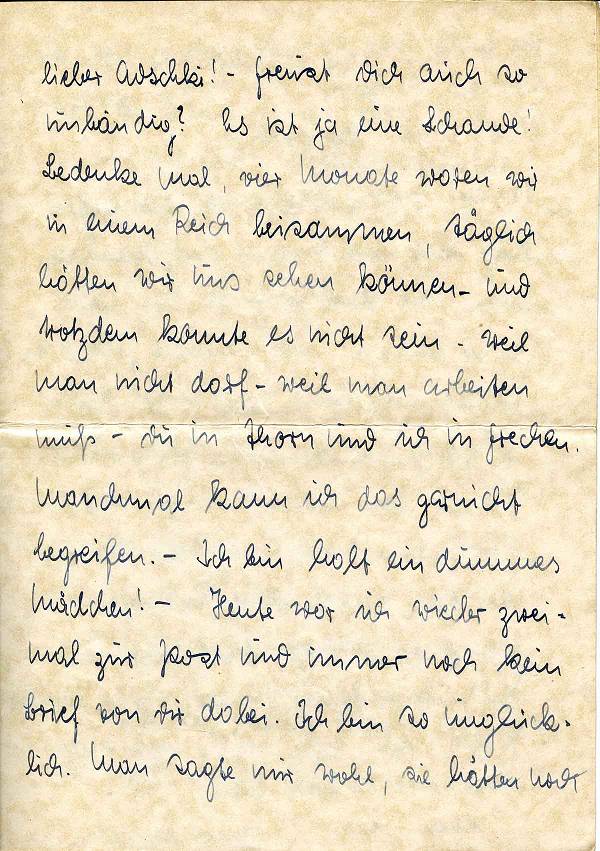 lieber Adschki! - freust dich auch so
unbändig? Es ist ja eine Schande!
Bedenke mal, vier Monate waren wir
in einem Reich beisammen, täglich
hätten wir uns sehen können - und
trotzdem konnte es nicht sein - weil
man nicht darf - weil man arbeiten
muß - du in Thorn und ich in Frechen.
Manchmal kann ich das garnicht
begreifen. - Ich bin halt ein dummes
Mädchen! - Heute war ich wieder zwei-
mal zur Post und immer noch kein
Brief von dir dabei. Ich bin so unglück-
lich. Man sagte mir wohl, sie hätten noch